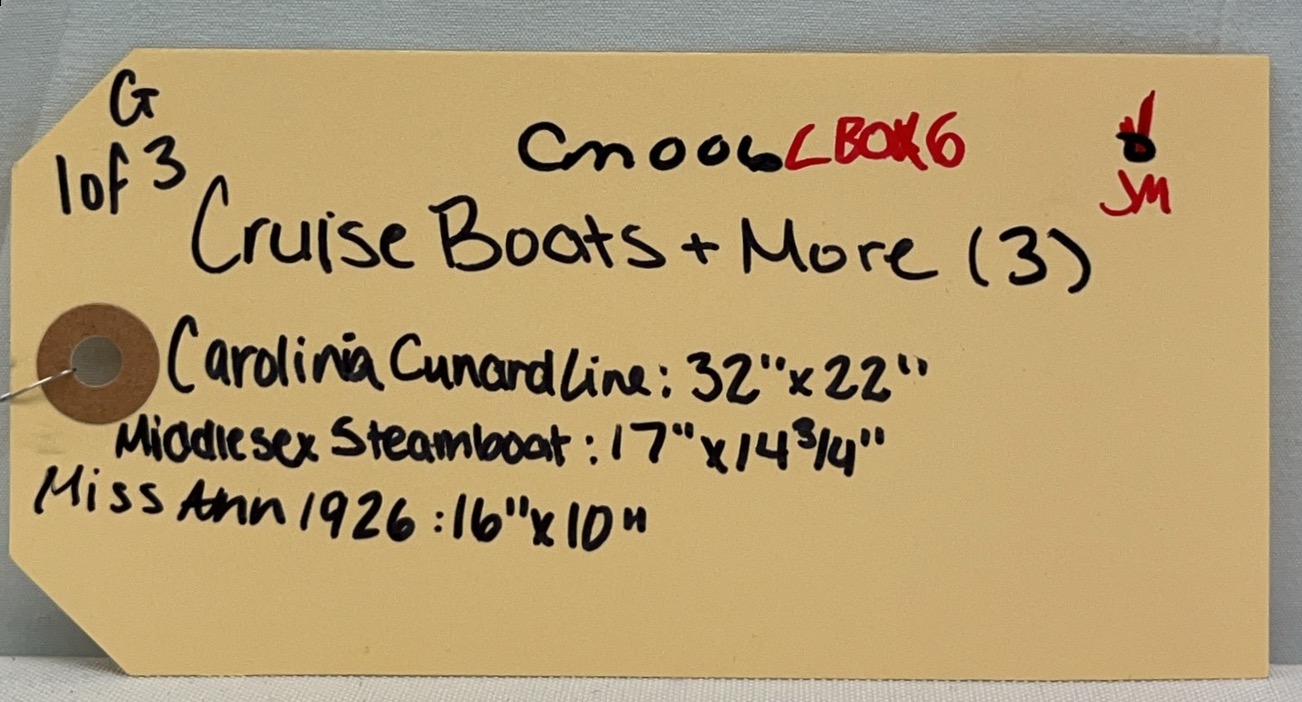 G
1 of 3
Cm006 LBOX6
JM
Cruise Boats + More (3)
Carolinia Cunard Line: 32" x 22"
Middlesex Steamboat: 17" x 14 3/4"
Miss Ann 1926: 16" x 10"